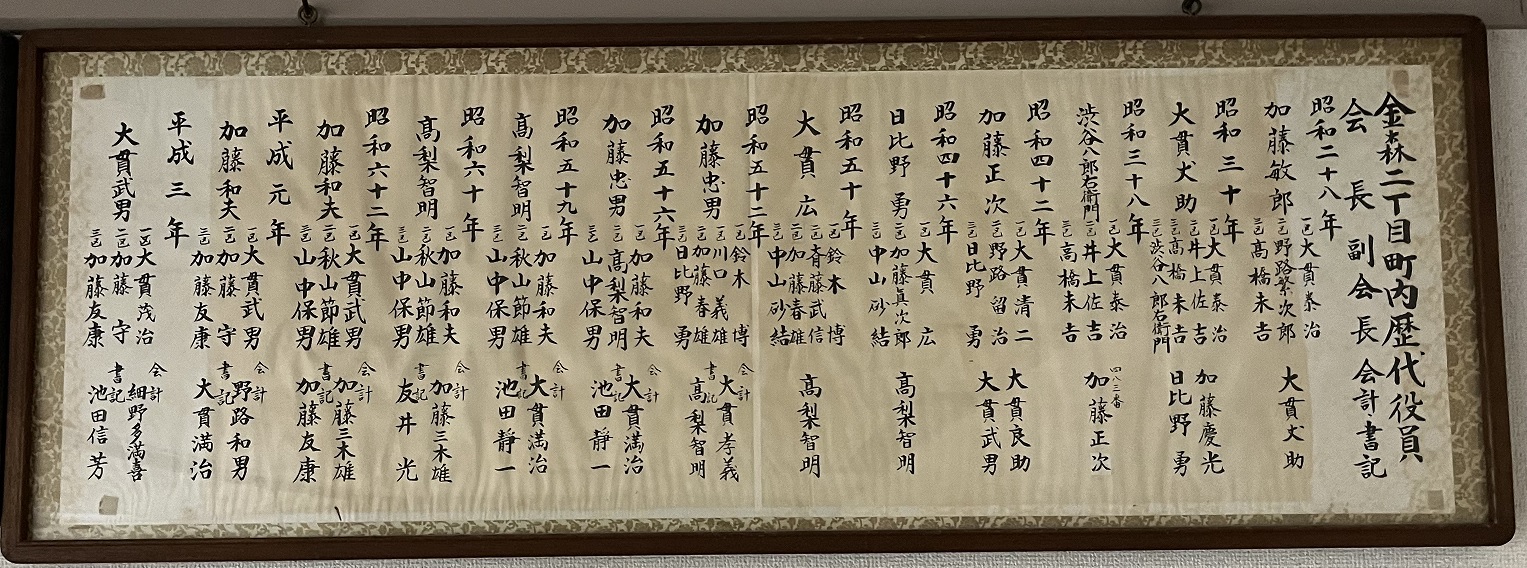 金森二丁目町内歴代役員
会長 副会長 会計・書記
昭和二十八年
加藤敏郎
一区 大貫泰治
二区 野路繁次郎
三区 高橋朱吉
大貫丈助
昭和三十年
大貫丈助
一区 大貫泰治
二区 井上佐吉
三区 高橋朱吉
三区 渋谷八郎右衛門
加藤慶光
日比野勇
昭和三十八年
渋谷八郎右衛門
一区 大貫泰治
二区 井上佐吉
三区 高橋朱吉
四八三番
加藤正次
昭和四十二年
加藤正次
一区 大貫清二
二区 野路留治
三区 日比野勇
大貫良助
大貫武男
昭和四十六年
日比野勇
一区 大貫広
二区 加藤眞次郎
三区 中山砂結
髙梨智明
昭和五十年
大貫広
一区 鈴木博
二区 斉藤武信
二区 加藤春雄
三区 中山砂結
髙梨智明
昭和五十二年
加藤忠男
一区 鈴木博
一区 川口義雄
二区 加藤春雄
三区 日比野勇
会計 大貫孝義
書記 髙梨智明
昭和五十六年
加藤忠男
一区 加藤和夫
二区 髙梨智明
三区 山中保男
会計 大貫満治
書記 池田靜一
昭和五十九年
髙梨智明
一区 加藤和夫
二区 秋山節雄
三区 山中保男
会計 大貫満治
書記 池田靜一
昭和六十年
髙梨智明
一区 加藤和夫
二区 秋山節雄
三区 山中保男
会計 加藤三木雄
友井光
昭和六十二年
加藤和夫
一区 大貫武男
二区 秋山節雄
三区 山中保男
会計 加藤三木雄
書記 加藤友康
平成元年
加藤和夫
一区 大貫武男
二区 加藤守
三区 加藤友康
会計 野路和男
書記 大貫満治
平成三年
大貫武男
一区 大貫茂治
二区 加藤守
三区 加藤友康
会計 細野多満喜
書記 池田信芳